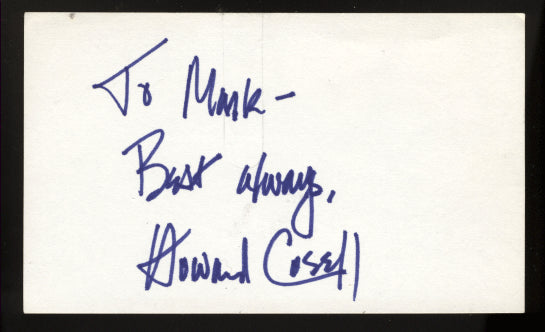 To Mark -
Best always,
Howard Cosell